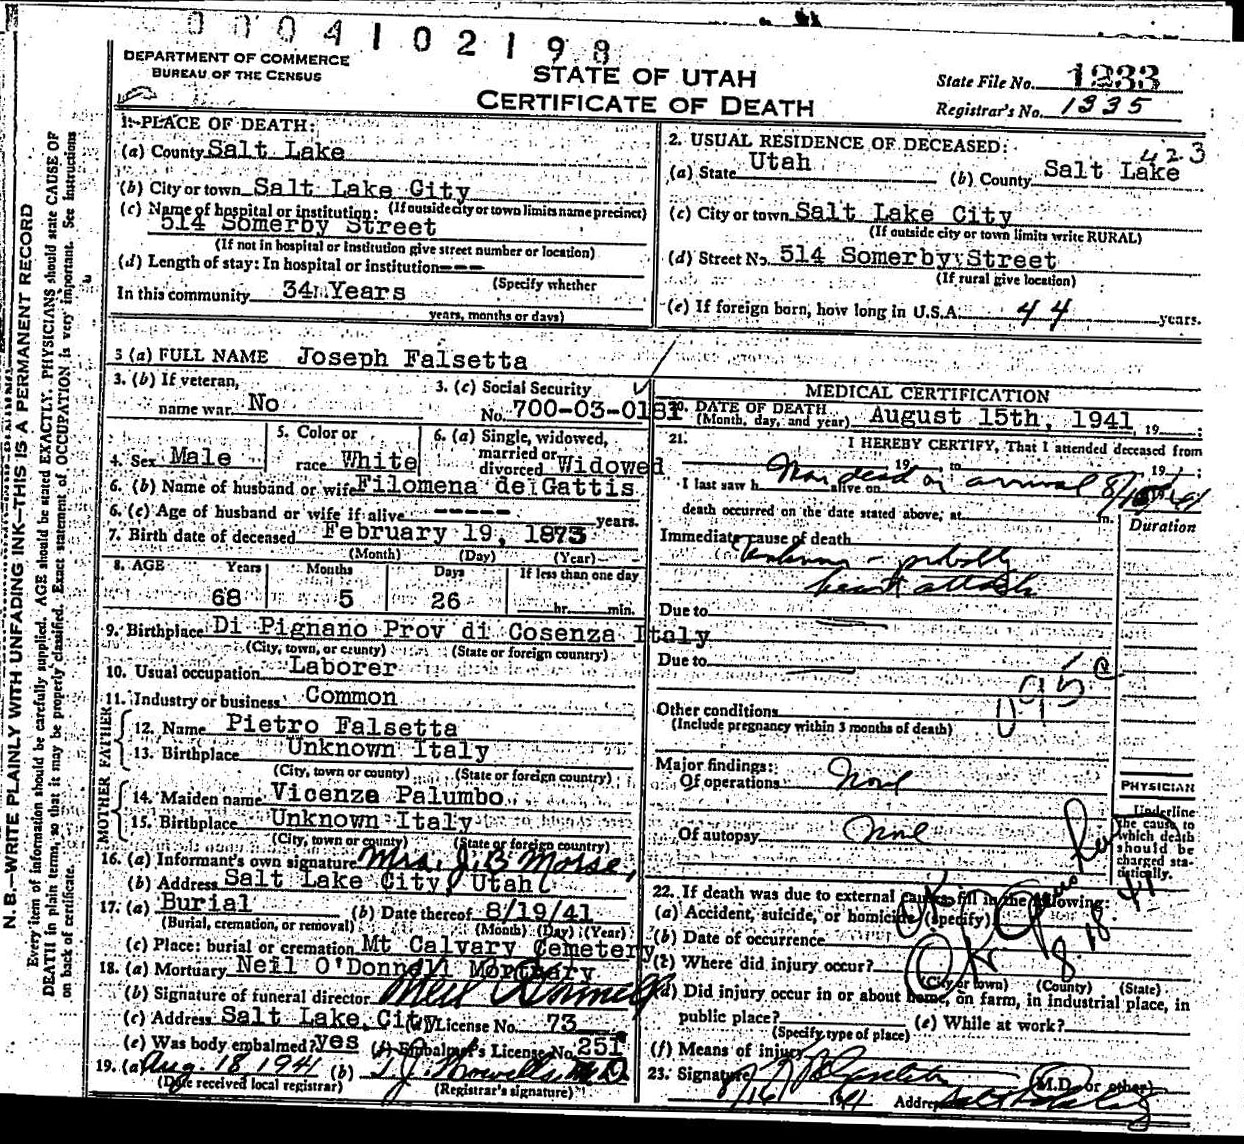 0004102198
DEPARTMENT OF COMMERCE
BUREAU OF THE CENSUS
STATE OF UTAH
CERTIFICATE OF DEATH
State File No. 1233
Registrar's No. 1335
N. B.—WRITE PLAINLY WITH UNFADING INK—THIS IS A PERMANENT RECORD
Every item of information should be carefully supplied. AGE should be stated EXACTLY. PHYSICIANS should state CAUSE OF
DEATH in plain terms, so that it may be properly classified. Exact statement of OCCUPATION is very important. See Instructions
on back of certificate.
1. PLACE OF DEATH:
(a) County Salt Lake
(b) City or town Salt Lake City
(If outside city or town limits name precinct)
(c) Name of hospital or institution:
514 Somerby Street
(If not in hospital or institution give street number or location)
(d) Length of stay: In hospital or institution ---
(Specify whether
In this community 34 Years
years, months or days)
2. USUAL RESIDENCE OF DECEASED:
423
(a) State Utah (b) County Salt Lake
(c) City or town Salt Lake City
(If outside city or town limits write RURAL)
(d) Street No. 514 Somerby Street
(If rural give location)
(e) If foreign born, how long in U.S.A. 44 years.
3 (a) FULL NAME Joseph Falsetta
3. (b) If veteran,
name war No
3. (c) Social Security
No. 700-03-0181
4. Sex Male
5. Color or
race White
6. (a) Single, widowed,
married or
divorced Widowed
6. (b) Name of husband or wife Filomena de Gattis
6. (c) Age of husband or wife if alive ----- years.
7. Birth date of deceased February 19, 1873
(Month) (Day) (Year)
8. AGE Years Months Days If less than one day
68 5 26 hr. min.
9. Birthplace Di Pignano Prov di Cosenza Italy
(City, town, or county) (State or foreign country)
10. Usual occupation Laborer
11. Industry or business Common
FATHER
12. Name Pietro Falsetta
13. Birthplace Unknown Italy
(City, town or county) (State or foreign country)
MOTHER
14. Maiden name Vicenza Palumbo
15. Birthplace Unknown Italy
(City, town or county) (State or foreign country)
16. (a) Informant's own signature Mrs. J. B. Morse,
(b) Address Salt Lake City, Utah
17. (a) Burial (b) Date thereof 8/19/41
(Burial, cremation, or removal) (Month) (Day) (Year)
(c) Place: burial or cremation Mt Calvary Cemetery
18. (a) Mortuary Neil O'Donnell Mortuary
(b) Signature of funeral director Neil O'Donnell
(c) Address Salt Lake City (d) License No. 73
(e) Was body embalmed? yes (f) Embalmer's License No. 251
19. (a) Aug. 18, 1941 (b) M.D.
(Date received local registrar) (Registrar's signature)
MEDICAL CERTIFICATION
20. DATE OF DEATH
(Month, day, and year) August 15th, 1941, 19 ;
21. I HEREBY CERTIFY, That I attended deceased from
, 19 , to , 19 ;
I last saw h Was dead on arrival alive on 8/15/41
death occurred on the date stated above, at m.
Duration
Immediate cause of death
Unknown - probably
heart attack
Due to
Due to
095 c
Other conditions
(Include pregnancy within 3 months of death)
Major findings:
Of operations None
Of autopsy None
PHYSICIAN
Underline
the cause to
which death
should be
charged sta-
tistically.
22. If death was due to external causes fill in the following:
(a) Accident, suicide, or homicide (specify)
(b) Date of occurrence
(c) Where did injury occur?
(City or town) (County) (State)
(d) Did injury occur in or about home, on farm, in industrial place, in
public place?
(Specify type of place)
(e) While at work?
(f) Means of injury
OK
8 18 41
23. Signature
(M.D. or other)
8/16 1941 Address Salt Lake City